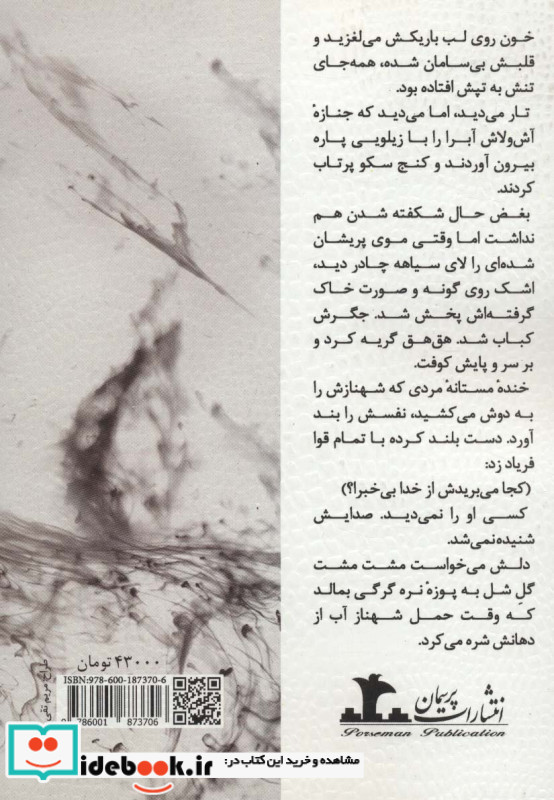 خون روی لب باریکش می‌لغزید و
قلبش بی‌سامان شده، همه‌جای
تنش به تپش افتاده بود.
تار می‌دید، اما می‌دید که جنازهٔ
آش‌ولاش آبرا را با زیلویی پاره
بیرون آوردند و کنج سکو پرتاب
کردند.
بغض حال شکفته شدن هم
نداشت اما وقتی موی پریشان
شده‌ای را لای سیاهه چادر دید،
اشک روی گونه و صورت خاک
گرفته‌اش پخش شد. جگرش
کباب شد. هق‌هق گریه کرد و
بر سر و پایش کوفت.
خندهٔ مستانهٔ مردی که شهنازش را
به دوش می‌کشید، نفسش را بند
آورد. دست بلند کرده با تمام قوا
فریاد زد:
(کجا می‌بریدش از خدا بی‌خبرا؟)
کسی او را نمی‌دید. صدایش
شنیده نمی‌شد.
دلش می‌خواست مشت مشت
گلِ شل به پوزهٔ نره گرگی بمالد
که وقت حمل شهناز آب از
دهانش شره می‌کرد.
۴۳۰۰۰ تومان
ISBN:978-600-187370-6
786001 873706
انتشارات پرسمان
Porseman Publication
طراح: مریم تقی
idebook.ir
مشاهده و خرید این کتاب در: